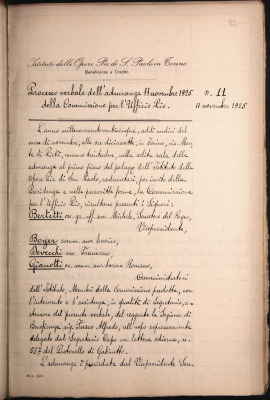 83
Istituto delle Opere Pie di S. Paolo in Torino
Beneficenza e Credito
Processo verbale dell'adunanza 11 novembre 1925
della Commissione per l'Ufficio Pio.
n. 11
11 novembre 1925
L'anno millenovecentoventicinque, addì undici del
mese di novembre, alle ore diciassette, in Torino, via Mon-
te di Pietà, numero trentadue, nella solita sala delle
adunanze al primo piano del palazzo dell'Istituto delle
Opere Pie di San Paolo, adunatasi, per invito della
Presidenza e nelle prescritte forme, la Commissione
per l'Ufficio Pio, risultano presenti i Signori:
Bertetti on. gr. uff. avv. Michele, Senatore del Regno,
Vicepresidente,
Boyer comm. avv. Enrico,
Devecchi avv. Francesco,
Gianotti comm. avv. Romano,
Amministratori
dell'Istituto, Membri della Commissione predetta, con
l'intervento e l'assistenza, in qualità di Segretario, e
estensore del presente verbale, del reggente la Sezione di
Beneficenza sig. Fusco Alfredo, all'uopo espressamente
delegato dal Segretario Capo con lettera odierna, n.
527 del Protocollo di Gabinetto.
L'adunanza è presieduta dal Vicepresidente Sen.